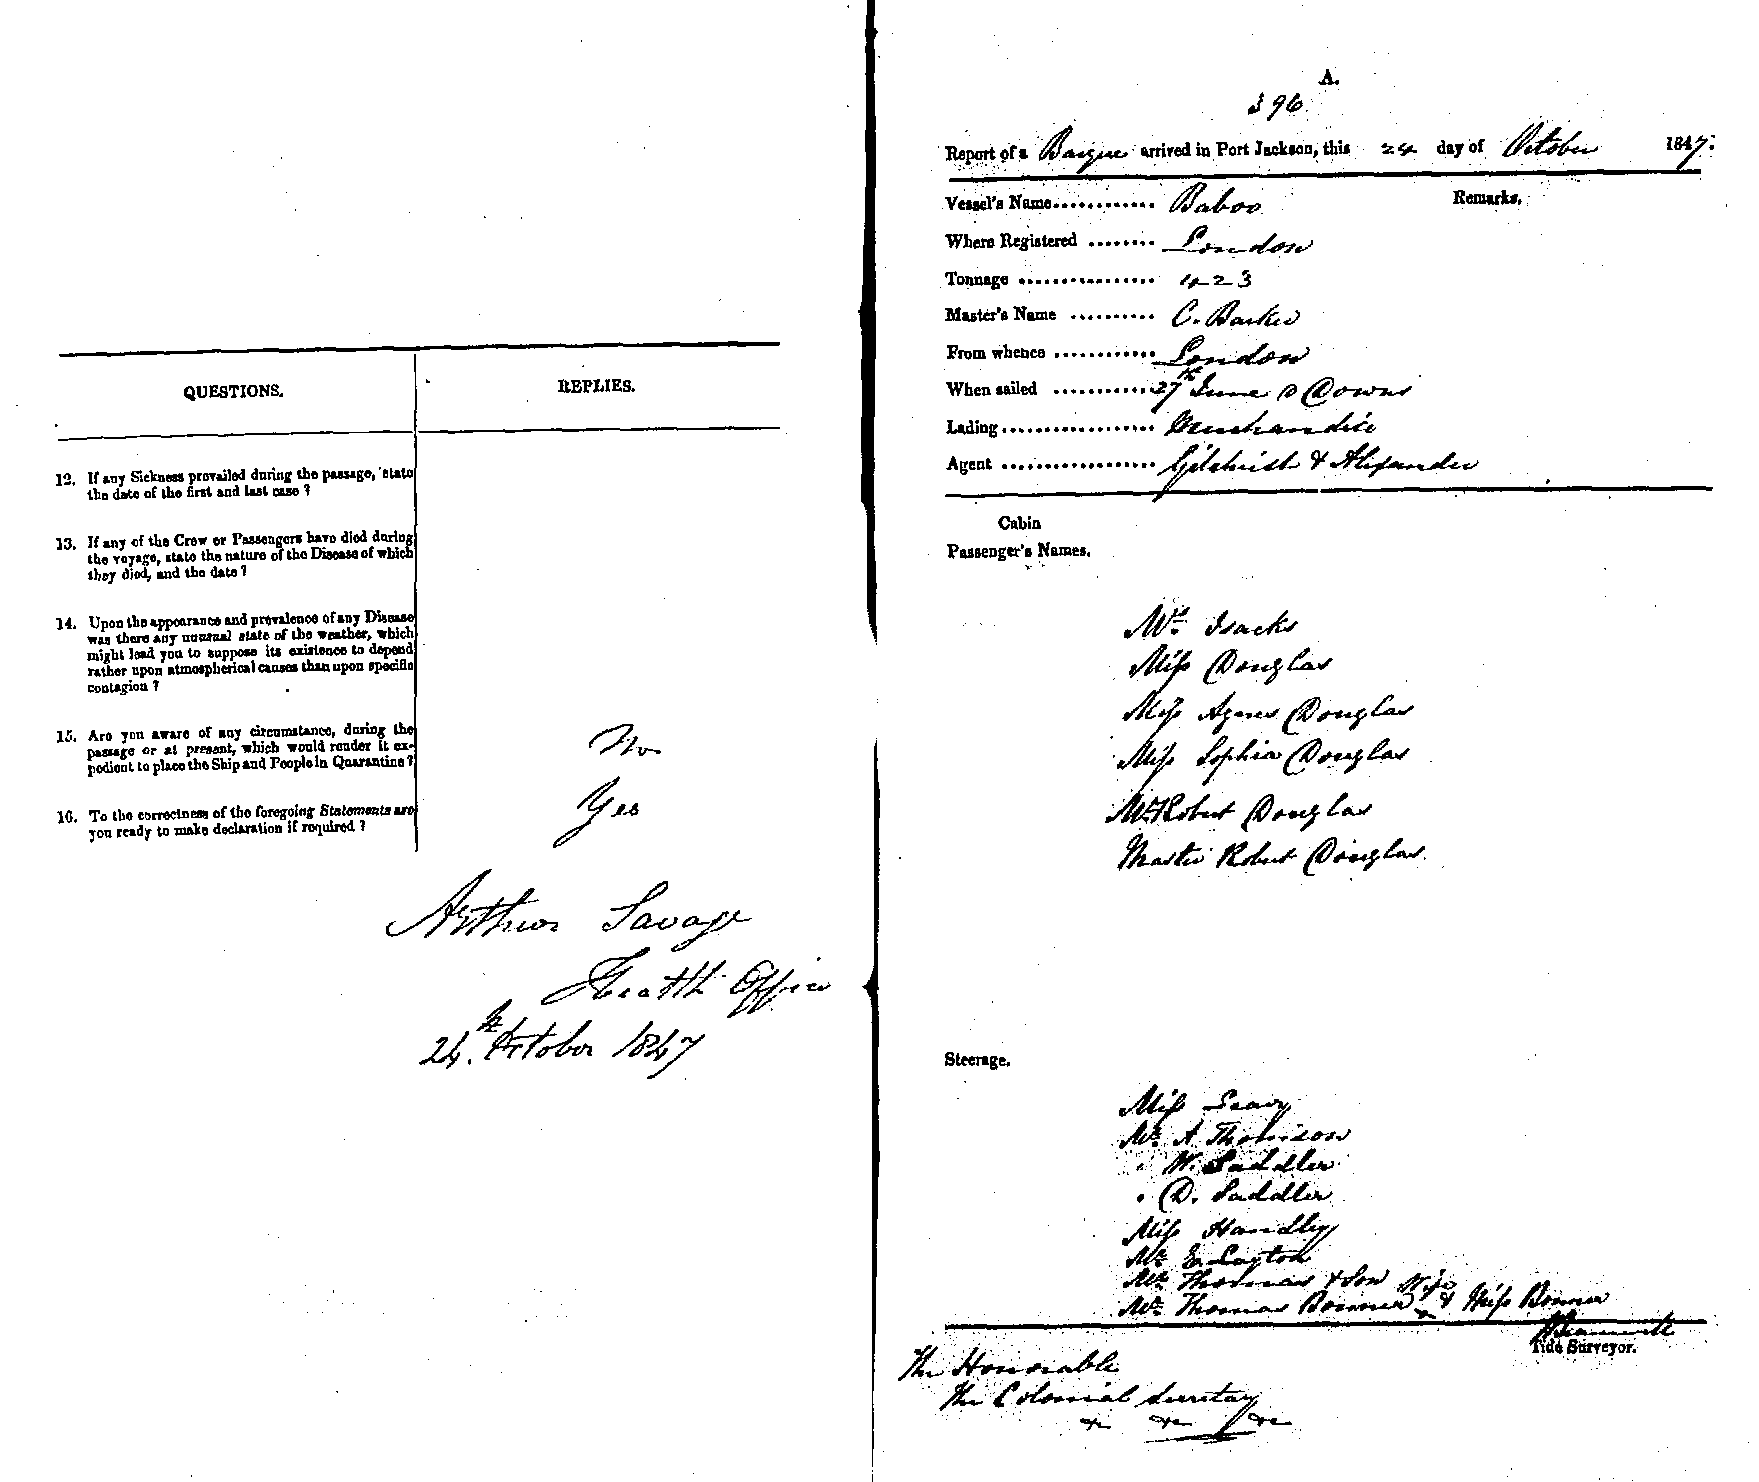 QUESTIONS.
REPLIES.
12. If any Sickness prevailed during the passage, state
the date of the first and last case ?
13. If any of the Crew or Passengers have died during
the voyage, state the nature of the Disease of which
they died, and the date ?
14. Upon the appearance and prevalence of any Disease
was there any unusual state of the weather, which
might lead you to suppose its existence to depend
rather upon atmospherical causes than upon specific
contagion ?
15. Are you aware of any circumstance, during the
passage or at present, which would render it ex-
pedient to place the Ship and People in Quarantine ?
No
16. To the correctness of the foregoing Statements are
you ready to make declaration if required ?
Yes
Arthur Savage
Health Officer
24th October 1847
A.
396
Report of a Barque arrived in Port Jackson, this 24 day of October 1847.
Vessel's Name............ Baboo
Remarks.
Where Registered ........ London
Tonnage ................ 423
Master's Name .......... C. Barker
From whence ............ London
When sailed ............ 27th June Downs
Lading.................. Merchandise
Agent .................. Gilchrist & Alexander
Cabin
Passenger's Names.
Mrs. Isacks
Miss Douglas
Miss Agnes Douglas
Miss Sophia Douglas
Mr Robert Douglas
Master Robert Douglas
Steerage.
Miss Leavy
Mr. A Thomson
" W. Saddler
" D. Saddler
Miss Handley
Mr. E. Layton
Mr. Thomas & Son
Mr. Thomas Bonner Wife & Miss Bonner
Tide Surveyor.
The Honorable
The Colonial Secretary
&c &c &c